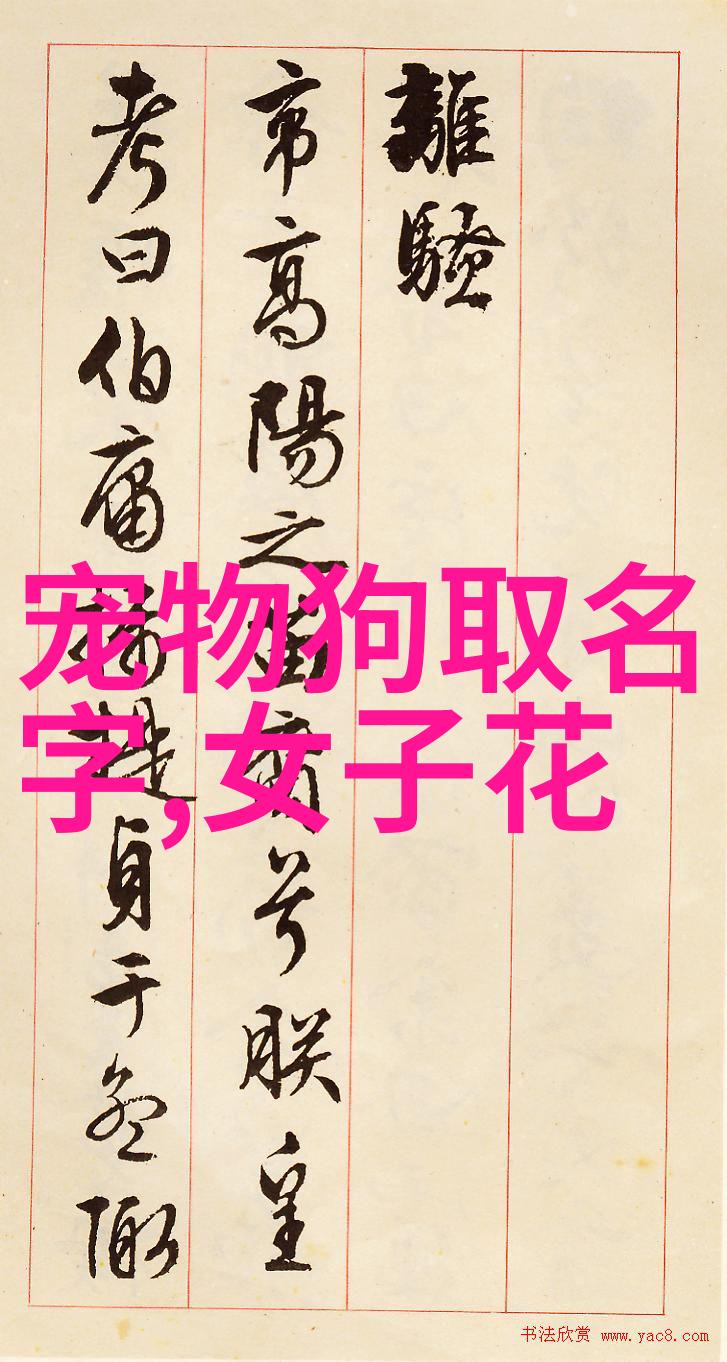 離騷
帝高陽之苗裔兮朕皇
考曰伯庸攝提貞于孟陬
宠物狗取名
字,女子花
书法欣赏 www.yac8.com